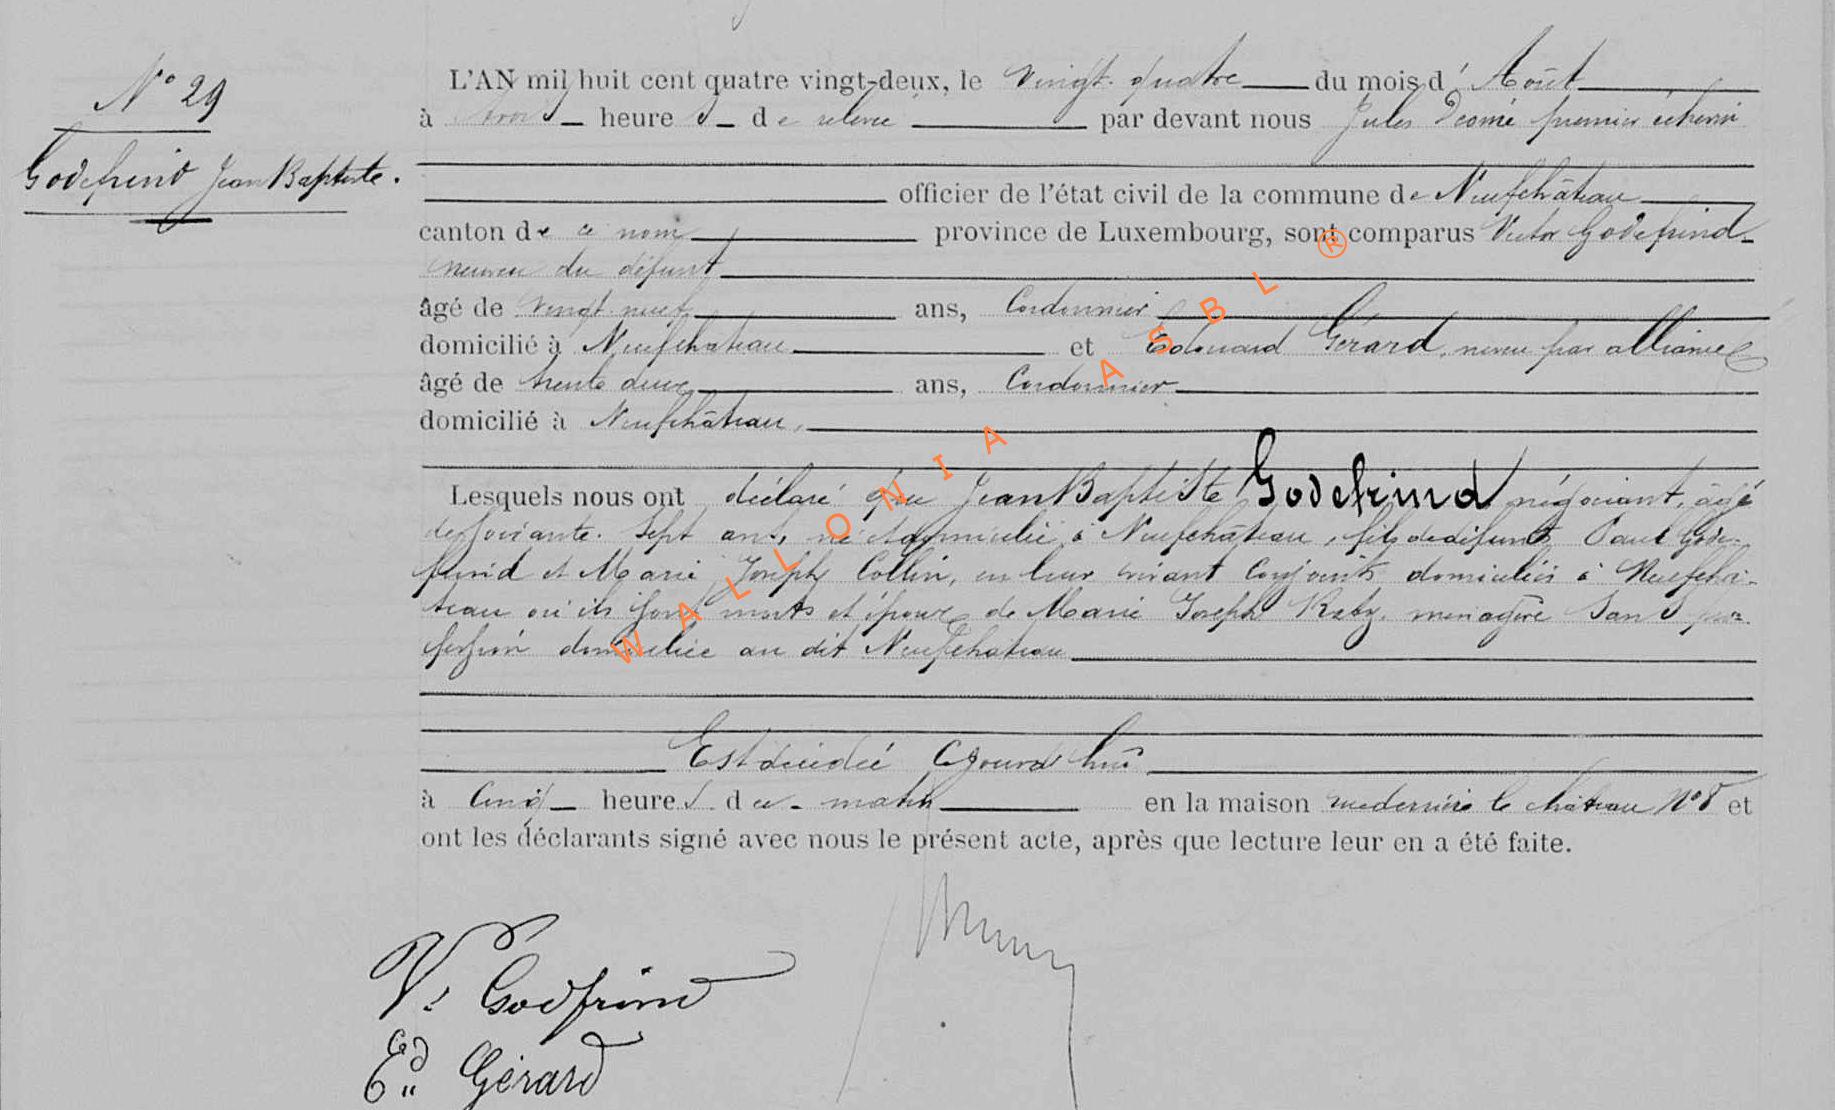 N° 29
Godefrind Jean Baptiste.
L'AN mil huit cent quatre vingt-deux, le vingt-quatre du mois d' Août
à trois heures de relevée par devant nous Jules premier échevin
officier de l'état civil de la commune de Neufchâteau
canton de ce nom province de Luxembourg, sont comparus Victor Godefrind
neveu du défunt
âgé de vingt neuf ans, Cordonnier
domicilié à Neufchateau et Edouard Gérard, neveu par alliance
âgé de trente deux ans, Cordonnier
domicilié à Neufchâteau,
Lesquels nous ont déclaré que Jean Baptiste Godefrind négociant, âgé
de soixante-sept ans, né et domicilié à Neufchâteau, fils de défunts Paul Gode-
frind et Marie Joseph Collin, en leur vivant conjoints domiciliés à Neufchâ-
teau où ils sont morts et époux de Marie Joseph ménagère sans pro-
fession domiciliée au dit Neufchateau
Est décédé aujourd'hui
à cinq heures du matin en la maison rue derrière le château N° 8 et
ont les déclarants signé avec nous le présent acte, après que lecture leur en a été faite.
V. Godfrind
Ed Gérard
WALLONIA ASBL ®